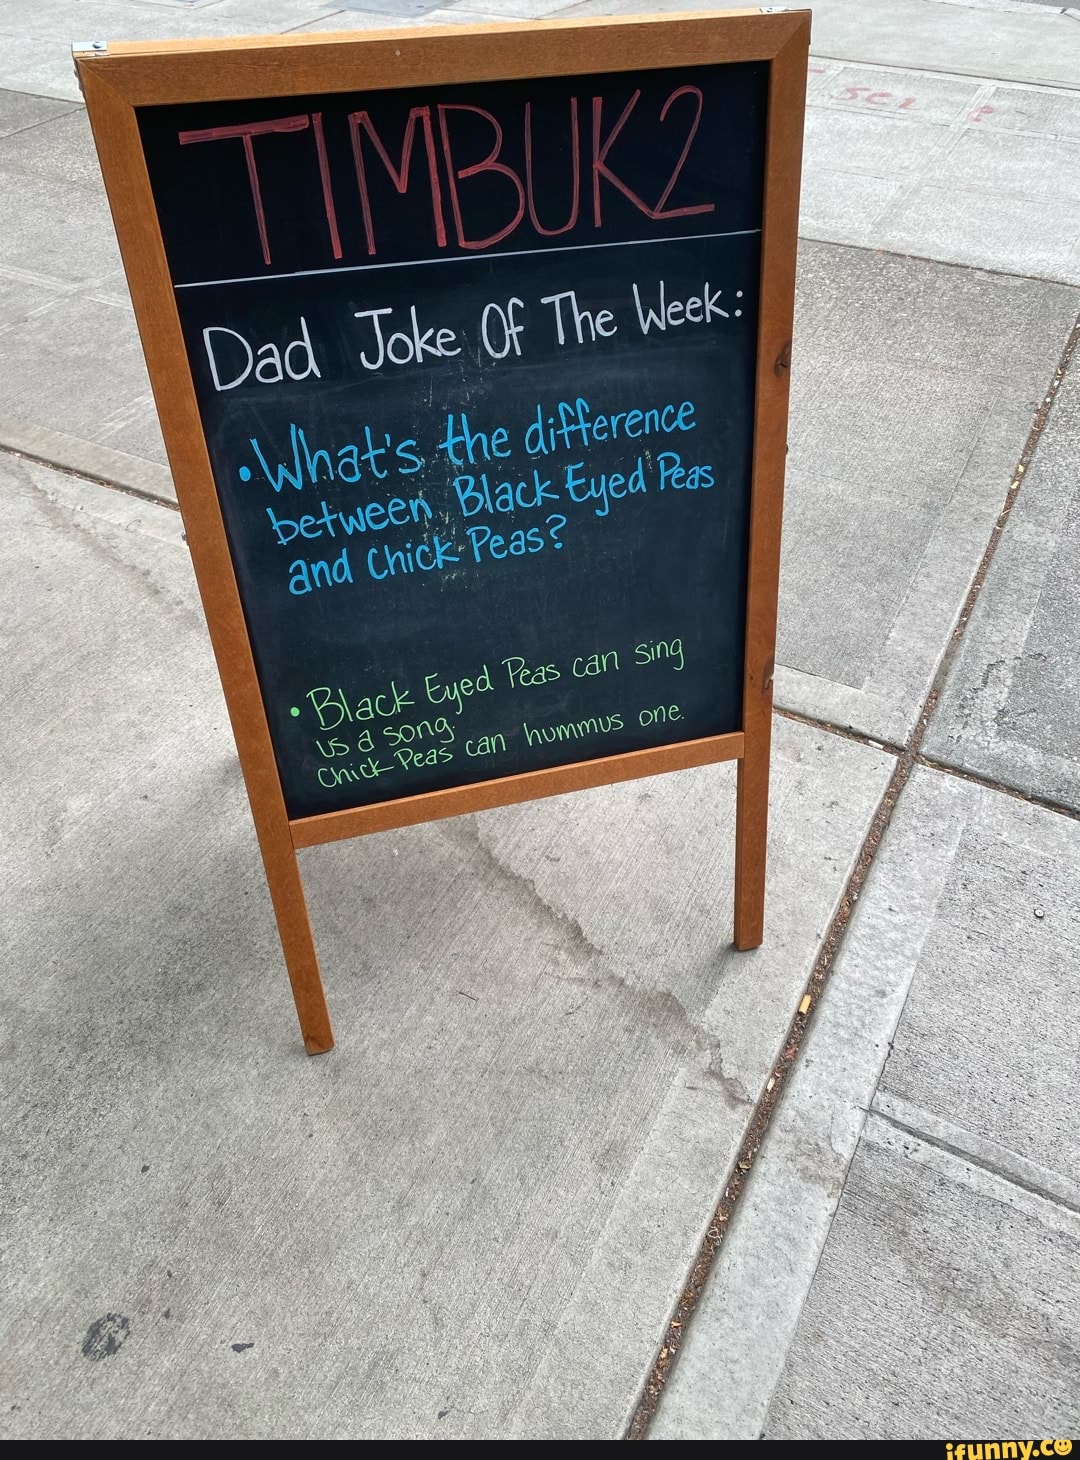 TIMBUK2
Dad Joke Of The Week:
•What's the difference
between Black Eyed Peas
and Chick Peas?
•Black Eyed Peas can sing
us a song.
Chick Peas can hummus one.
ifunny.co